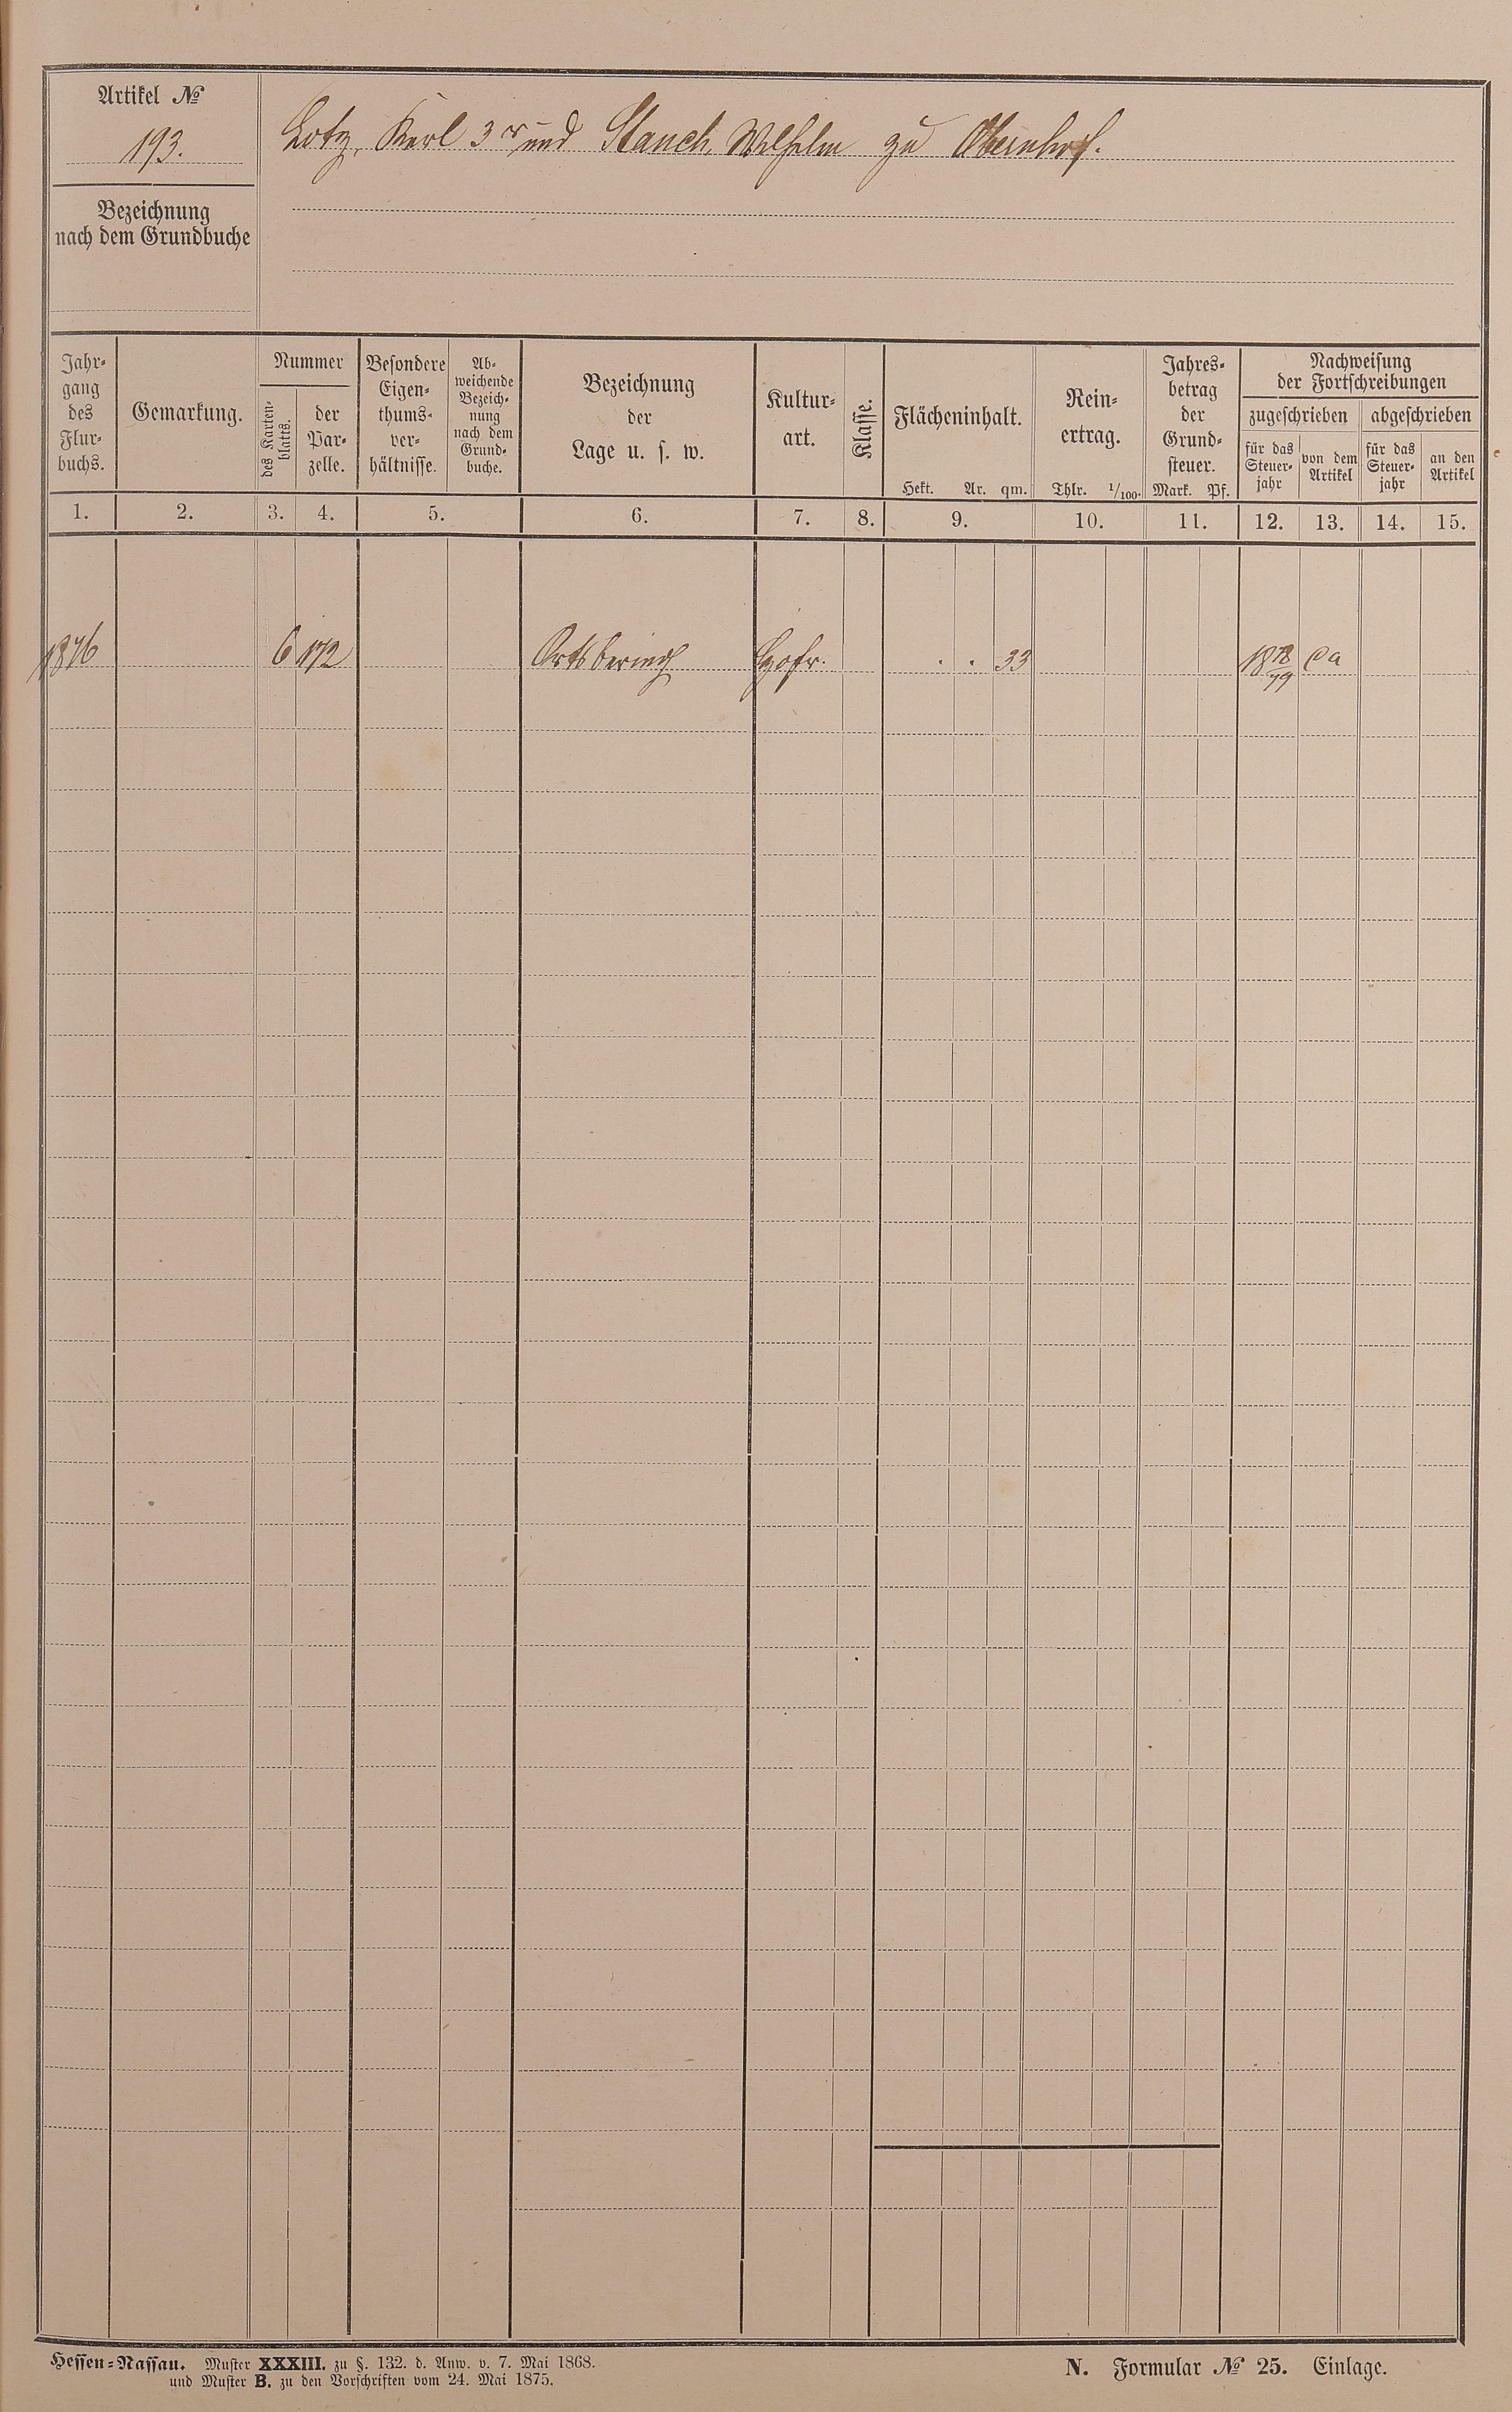 Artikel №
193.
Lotz, Karl 3r und Stauch, Wilhelm zu Obernhof.
Bezeichnung
nach dem Grundbuche
Jahr-
gang
des
Flur-
buchs.
Gemarkung.
Nummer
des Karten-
blatts.
der
Par-
zelle.
Besondere
Eigen-
thums-
ver-
hältnisse.
Ab-
weichende
Bezeich-
nung
nach dem
Grund-
buche.
Bezeichnung
der
Lage u. s. w.
Kultur-
art.
Klasse.
Flächeninhalt.
Hekt. Ar. qm.
Rein-
ertrag.
Thlr. 1/100.
Jahres-
betrag
der
Grund-
steuer.
Mark. Pf.
Nachweisung
der Fortschreibungen
zugeschrieben
abgeschrieben
für das
Steuer-
jahr
von dem
Artikel
für das
Steuer-
jahr
an den
Artikel
1. 2. 3. 4. 5. 6. 7. 8. 9. 10. 11. 12. 13. 14. 15.
1876 6 172 Ortsbering Hofr. . . 33 1878/79
Hessen-Nassau. Muster XXXIII. zu §. 132. d. Anw. v. 7. Mai 1868.
und Muster B. zu den Vorschriften vom 24. Mai 1875.
N. Formular № 25. Einlage.